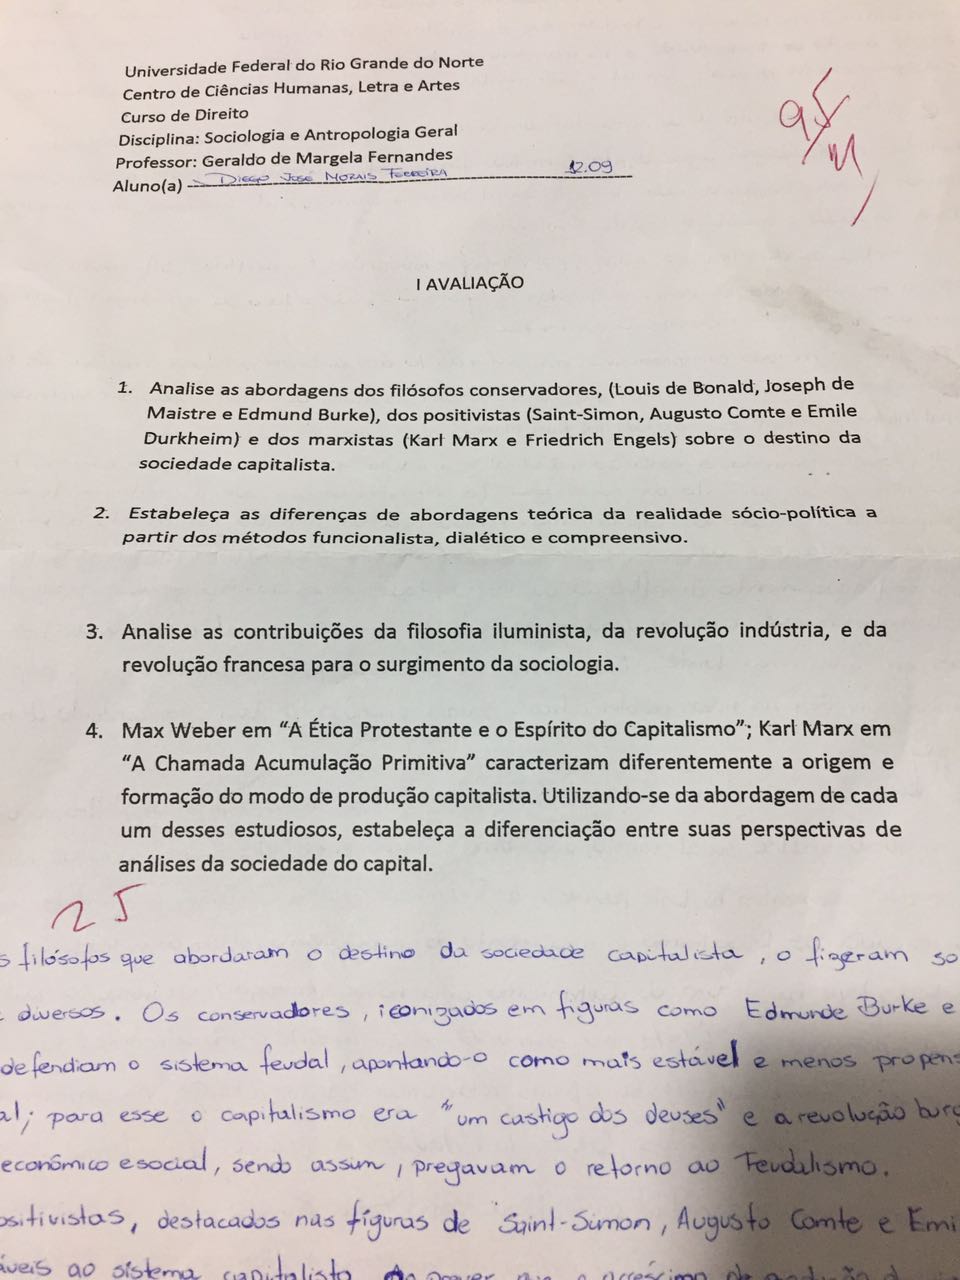 Universidade Federal do Rio Grande do Norte
Centro de Ciências Humanas, Letra e Artes
Curso de Direito
Disciplina: Sociologia e Antropologia Geral
Professor: Geraldo de Margela Fernandes
Aluno(a) DIEGO JOSÉ MORAIS FERREIRA 12.09
95
I AVALIAÇÃO
1. Analise as abordagens dos filósofos conservadores, (Louis de Bonald, Joseph de
Maistre e Edmund Burke), dos positivistas (Saint-Simon, Augusto Comte e Emile
Durkheim) e dos marxistas (Karl Marx e Friedrich Engels) sobre o destino da
sociedade capitalista.
2. Estabeleça as diferenças de abordagens teórica da realidade sócio-política a
partir dos métodos funcionalista, dialético e compreensivo.
3. Analise as contribuições da filosofia iluminista, da revolução indústria, e da
revolução francesa para o surgimento da sociologia.
4. Max Weber em “A Ética Protestante e o Espírito do Capitalismo”; Karl Marx em
“A Chamada Acumulação Primitiva” caracterizam diferentemente a origem e
formação do modo de produção capitalista. Utilizando-se da abordagem de cada
um desses estudiosos, estabeleça a diferenciação entre suas perspectivas de
análises da sociedade do capital.
25
s filósofos que abordaram o destino da sociedade capitalista, o fizeram so
diversos. Os conservadores, iconizados em figuras como Edmunde Burke e
defendiam o sistema feudal, apontando-o como mais estável e menos propens
al; para esse o capitalismo era "um castigo dos deuses" e a revolução burg
econômico e social, sendo assim, pregavam o retorno ao Feudalismo.
ositivistas, destacados nas figuras de Saint-Simon, Augusto Comte e Emi
áveis ao sistema capitalista.